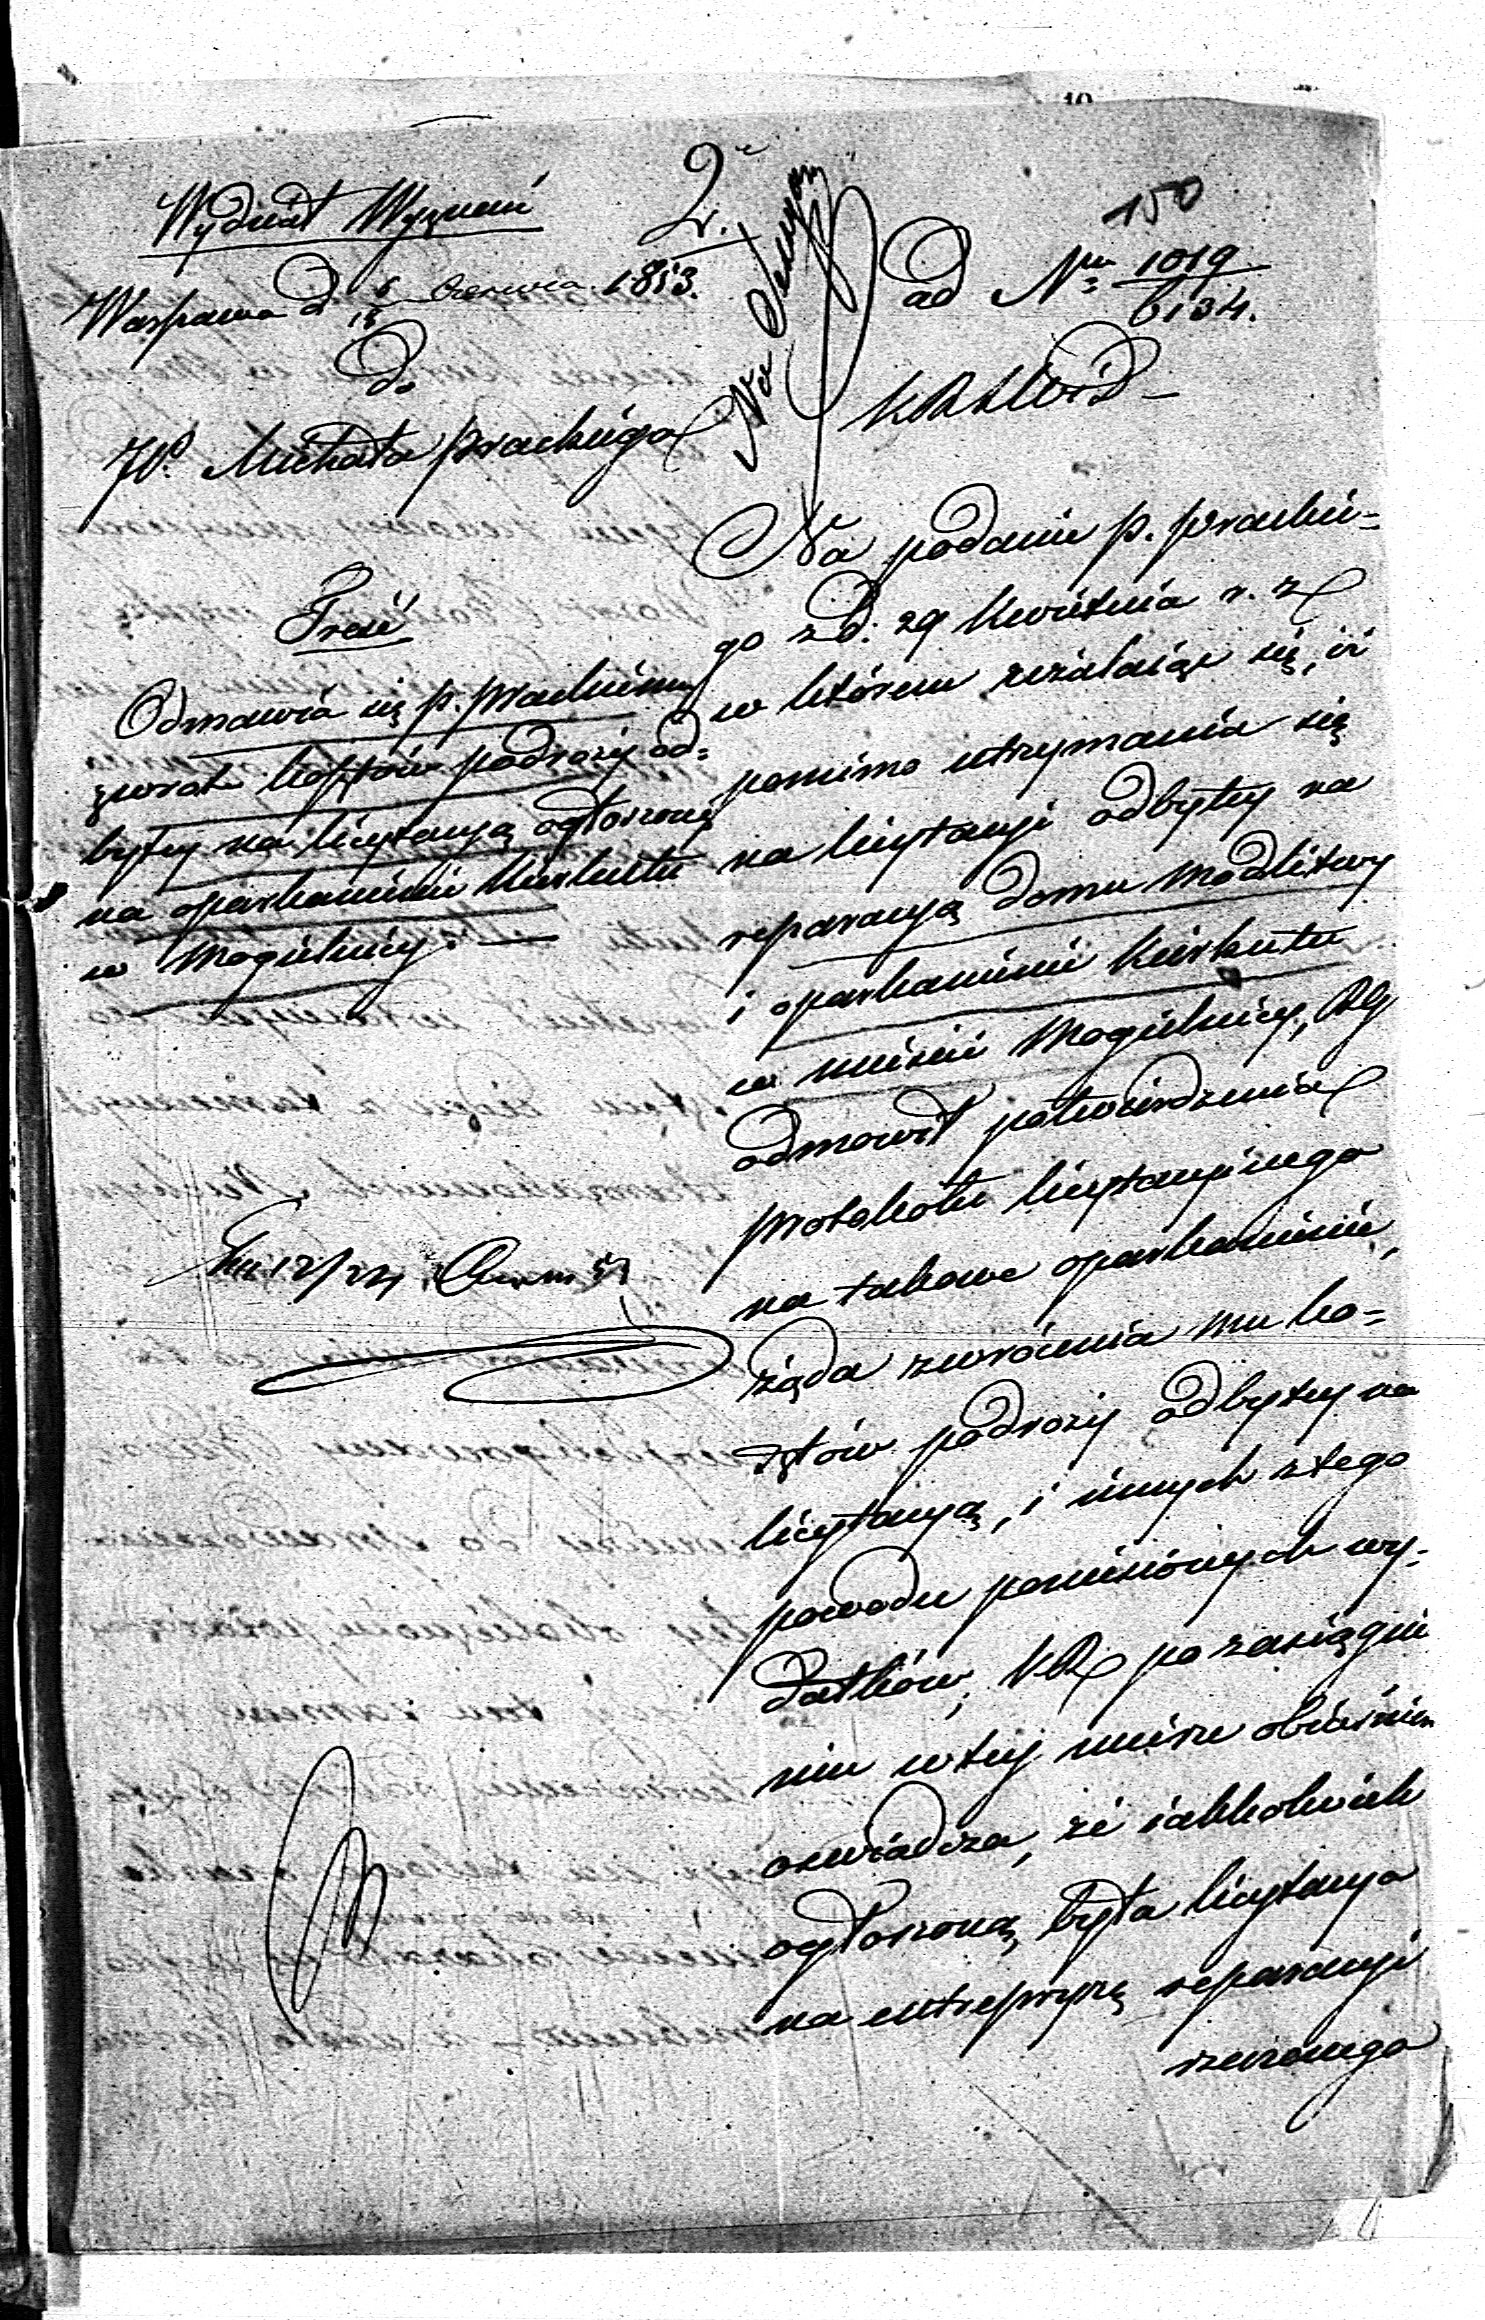 150
Wydział Wyznań
Warszawa d 6/18 Czerwca 1853.
ad Nru 1019/6134.
do
W. Michała Prackiego
KRSWiD
Treść
Odmawia się p. Prackiemu
zwrotu kosztów podróży od=
bytey na licytacyą ogłoszoną
na oparkanienie kirkutu
w Mogielnicy. —
12/24 Czerw 53
Na podanie p. Prackie=
go z d. 29 Kwietnia r. z
w którem użalając się, iż
pomimo utrzymania się
na licytacyi odbytey na
reparacyą domu modlitwy
i oparkanienie kirkutu
w mieście Mogielnicy, RG
odmówił potwierdzenia
protokołu licytacyjnego
na takowe oparkanienie,
żąda zwrócenia mu ko=
sztów podróży odbytey na
licytacyą, i innych z tego
powodu poniesionych wy=
datków, KR po zasiągnie
niu w tey mierze objaśnień
oświadcza, że jakkolwiek
ogłoszoną była licytacya
na entrepryzę reparacyi
rzeczonego